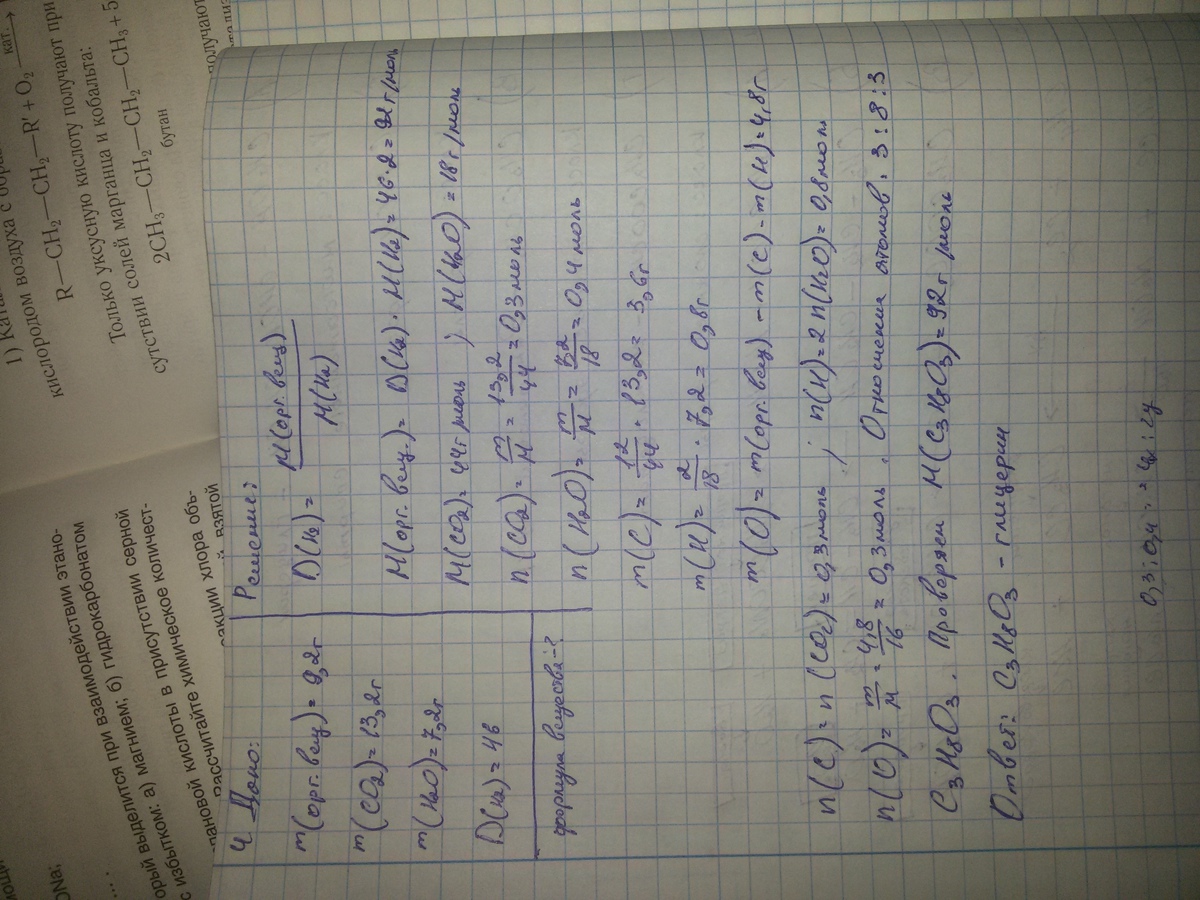 1) Ката
кислородом воздуха с бора
R—CH₂—CH₂—R' + O₂ кат.→
Только уксусную кислоту получают при
сутствии солей марганца и кобальта:
2CH₃—CH₂—CH₂—CH₃ + 5
бутан
получают
ONa;
....
орый выделится при взаимодействии этано-
с избытком: а) магнием; б) гидрокарбонатом
пановой кислоты в присутствии серной
Рассчитайте химическое количест-
акции хлора объ-
взятой
4 Дано:
m(орг. вещ.) = 9,2г
m(CO₂) = 13,2г
m(H₂O) = 7,2г
D(H₂) = 46
формула вещества-?
Решение:
D(H₂) = M(орг. вещ) / M(H₂)
M(орг. вещ.) = D(H₂) · M(H₂) = 46·2 = 92г/моль
M(CO₂) = 44г/моль ; M(H₂O) = 18г/моль
n(CO₂) = m/M = 13,2/44 = 0,3моль
n(H₂O) = m/M = 7,2/18 = 0,4моль
m(C) = 12/44 · 13,2 = 3,6г
m(H) = 2/18 · 7,2 = 0,8г
m(O) = m(орг. вещ) - m(C) - m(H) = 4,8г
n(C) = n(CO₂) = 0,3моль ; n(H) = 2n(H₂O) = 0,8моль
n(O) = m/M = 4,8/16 = 0,3моль. Отношения атомов: 3:8:3
C₃H₈O₃. Проверяем M(C₃H₈O₃) = 92г/моль
Ответ: C₃H₈O₃ - глицерин
0,3:0,4